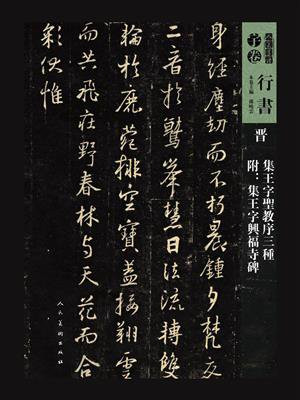 身經塵劫而不朽晨鍾夕梵交
二音於鷲峯慧日法流轉雙
輪於鹿菀排空寶蓋接翔雲
而共飛莊野春林与天花而合
彩伏惟
行書
晋
集王字聖教序三種
附：集王字興福寺碑
人民美術出版社